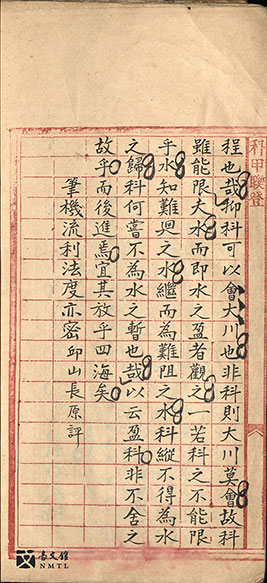 程也哉抑科可以會大川也非科則大川莫會故科
雖能限夫水而即水之盈者觀之一若科之不能限
乎水知難迴之水繼而為難阻之水科縱不得為水
之歸科何嘗不為水之暫也哉以云盈科非不舍之
故乎而後進焉宜其放乎四海矣
筆機流利法度亦密邱山長原評
科甲聯登
台文館
NMTL